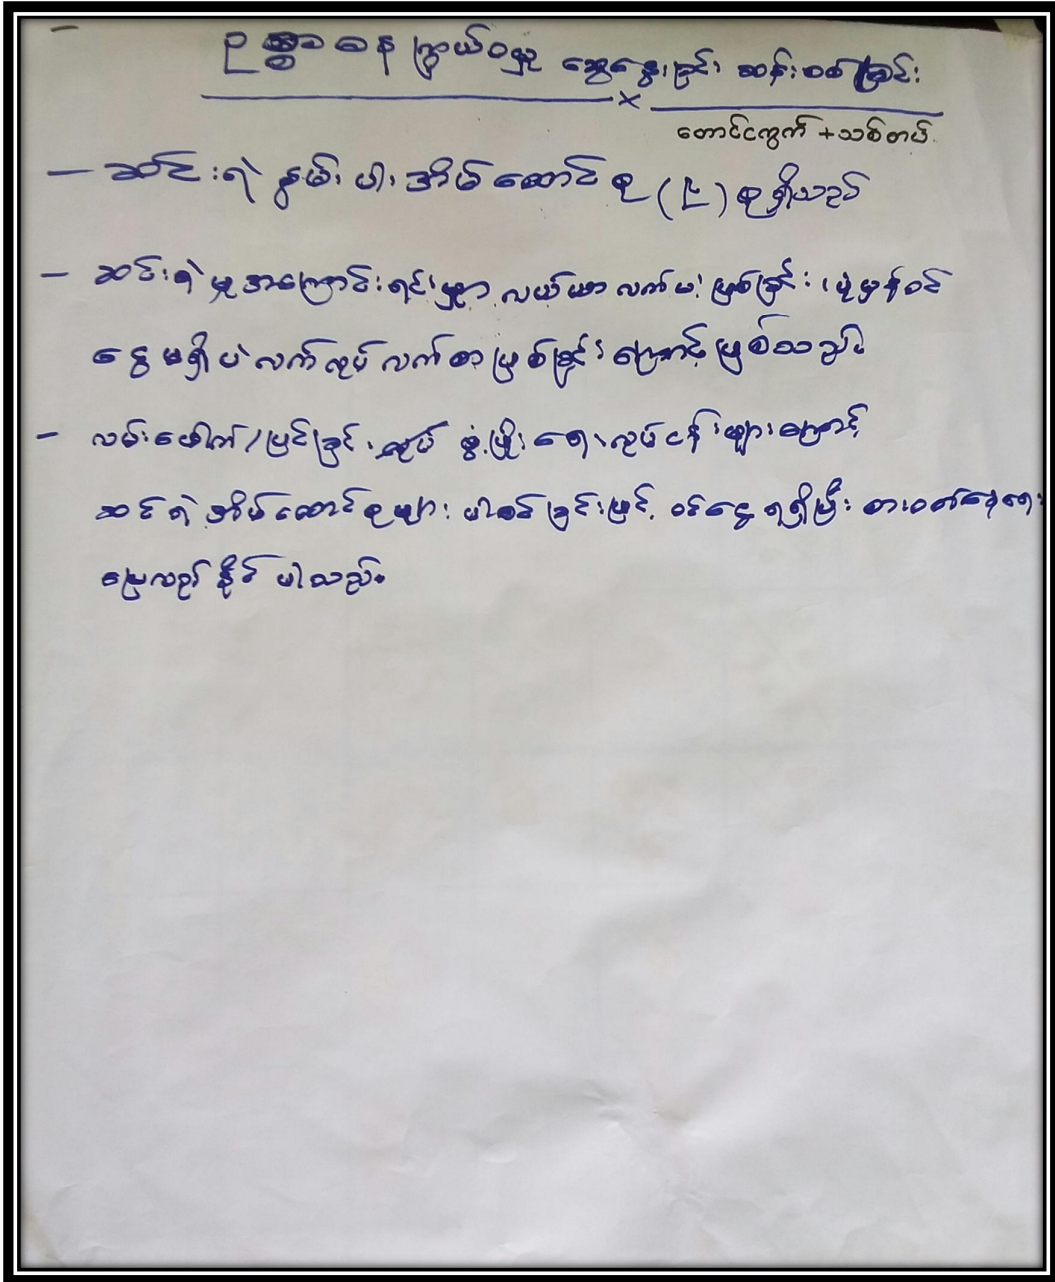 ဥစ္စာဓန ကြွယ်ဝမှု ဆွေးနွေးခြင်း ဆန်းစစ်ခြင်း
တောင်ငကွက် + သစ်တပ်
– ဆင်းရဲ နွမ်းပါး အိမ်ထောင်စု (၉) စု ရှိသည်
– ဆင်းရဲမှု အကြောင်းရင်းမှာ လယ်ယာလက်မဲ့ ဖြစ်ခြင်း၊ ပုံမှန်ဝင်
ငွေ မရှိပဲ လက်လုပ်လက်စား ဖြစ်ခြင်းကြောင့် ဖြစ်သည်။
– လမ်းဖေါက်/ပြင်ခြင်း ဖွံ့ဖြိုးရေးလုပ်ငန်းများကြောင့်
ဆင်းရဲ အိမ်ထောင်စုများ ပါဝင်ခြင်းဖြင့် ဝင်ငွေ ရရှိပြီး စားဝတ်နေရေး
ပြေလည်နိုင်ပါသည်။